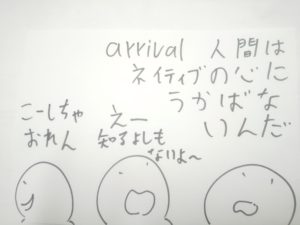 arrival 人間は
ネイティブの心に
うかばな
いんだ
えー
知るよしも
ないよ〜
こーしちゃ
おれん